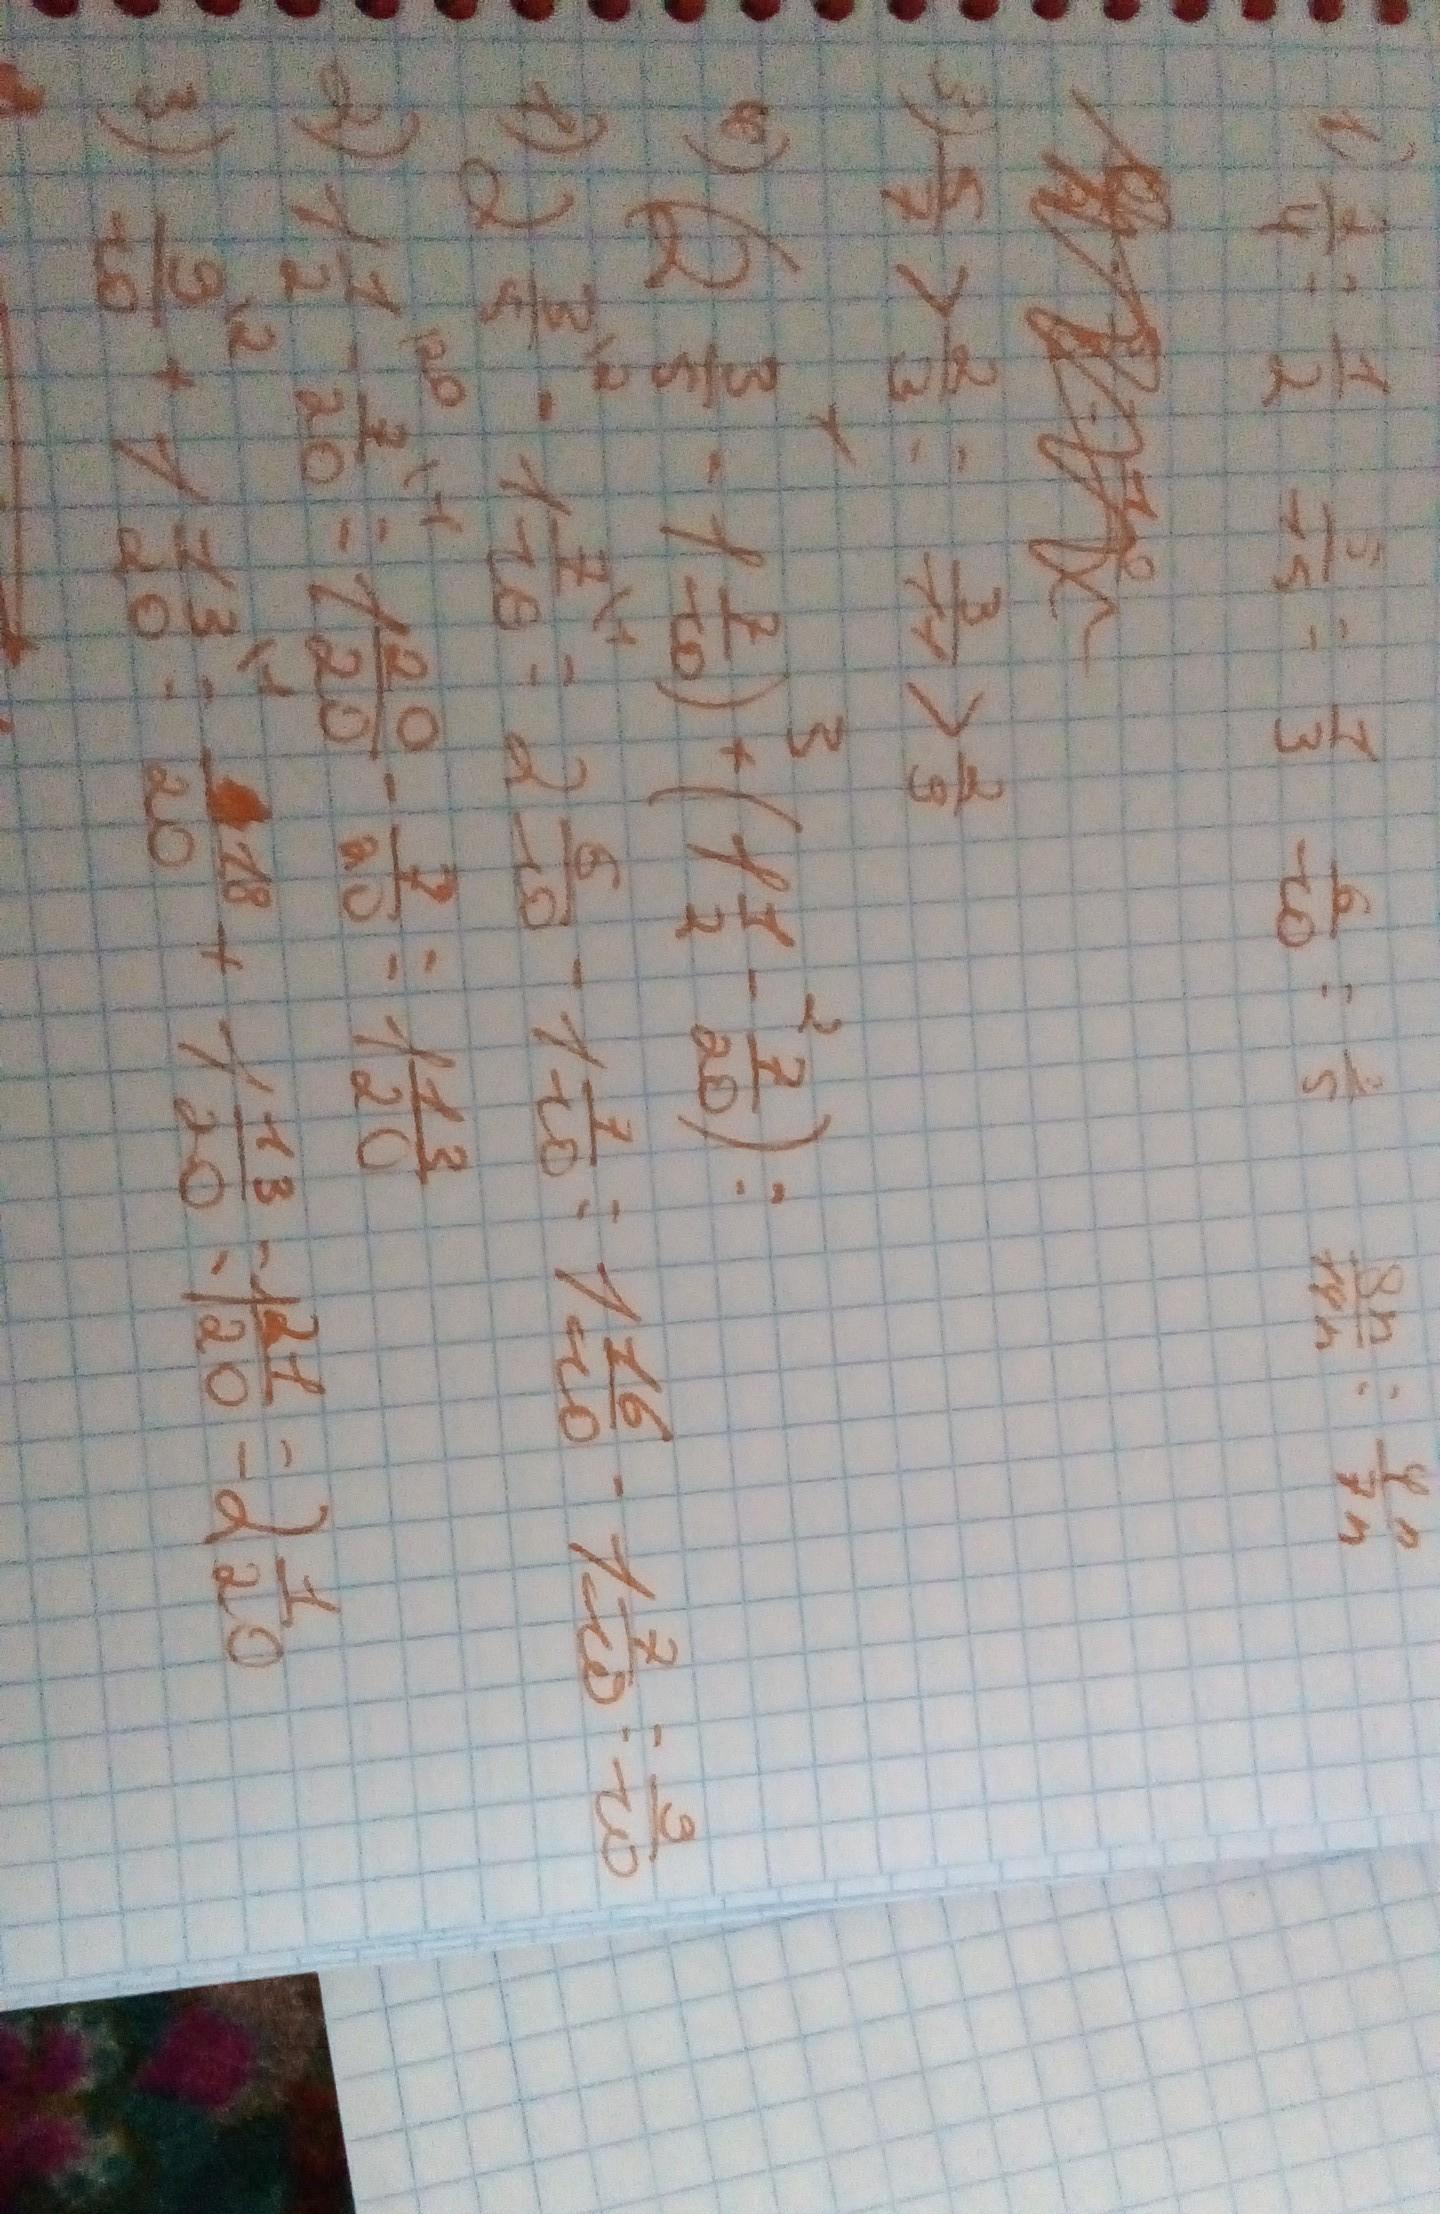 1) 2/4 = 1/2 5/15 = 1/3 6/10 = 3/5 8n/14n = 4n/7n
3) 5/7 > 2/3 = 3/11 > 2/9
1 3 2
(2 3/5 - 1 7/10) + (1 1/2 - 7/20) =
1) 2 3/5 \2 - 1 7/10 \1 = 2 6/10 - 1 7/10 = 1 16/10 - 1 7/10 = 9/10
2) 1 1/2 \20 - 7/20 \1 = 1 20/20 - 7/20 = 1 13/20
3) 9/10 \2 + 1 13/20 \1 = 18/20 + 1 13/20 = 1 21/20 = 2 1/20